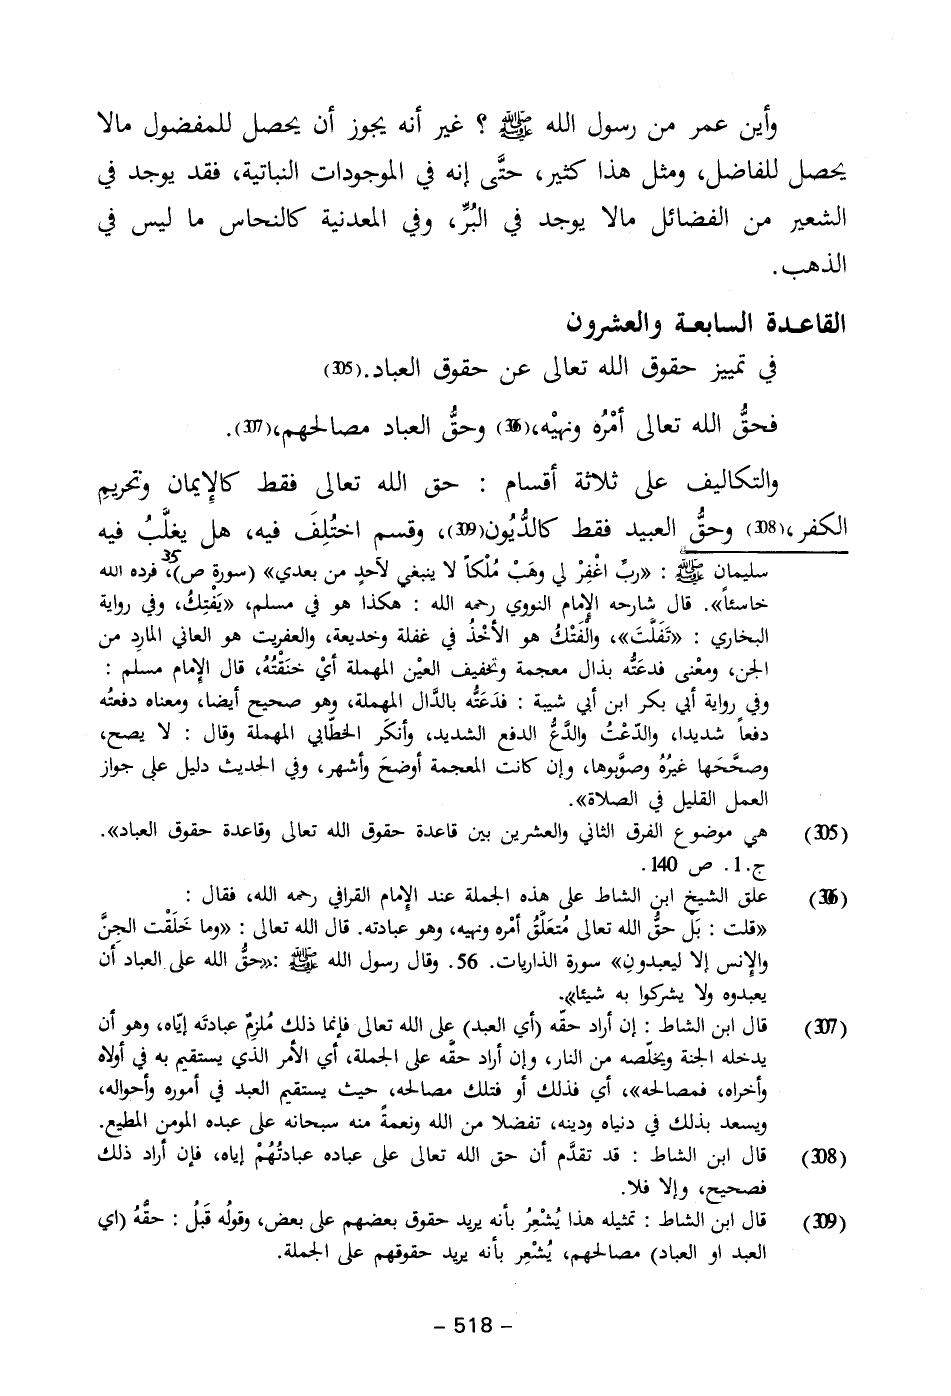 وأين عمر من رسول الله ﷺ ؟ غير أنه يجوز أن يحصل للمفضول مالا
يحصل للفاضل، ومثل هذا كثير، حتَّى إنه في الموجودات النباتية، فقد يوجد في
الشعير من الفضائل مالا يوجد في البُرِّ، وفي المعدنية كالنحاس ما ليس في
الذهب.
القاعدة السابعة والعشرون
في تمييز حقوق الله تعالى عن حقوق العباد.(305)
فحقُّ الله تعالى أمْرُه ونهيْه،(306) وحقُّ العباد مصالحهم،(307).
والتكاليف على ثلاثة أقسام : حق الله تعالى فقط كالإيمان وتحريم
الكفر،(308) وحقُّ العبيد فقط كالدُّيُون(309)، وقسم اختُلِفَ فيه، هل يغلَّبُ فيه
سليمان ﷺ : «ربِّ اغْفِرْ لي وهَبْ مُلْكاً لا ينبغي لأحدٍ من بعدي» (سورة ص)،35 فرده الله
خاسئاً». قال شارحه الإمام النووي رحمه الله : هكذا هو في مسلم، «يَفْتِكُ، وفي رواية
البخاري : «تَفَلَّتَ»، والْفَتْكُ هو الأخْذُ في غفلة وخديعة، والعفريت هو العاني المارد من
الجن، ومعْنى فدعَتُّه بذال معجمة وتخفيف العيْن المهملة أيْ خنَقْتُهُ، قال الإمام مسلم :
وفي رواية أبي بكر ابن أبي شيبة : فدَعَتُّه بالدَّال المهملة، وهو صحيح أيضا، ومعناه دفعتُه
دفعاً شديدا، والدّعْتُ والدَّعُّ الدفع الشديد، وأنكَر الخطّابي المهملة وقال : لا يصح،
وصحَّحَها غيرُهُ وصوَّبوها، وإن كانت المعجمة أوضحَ وأشهر، وفي الحديث دليل على جواز
العمل القليل في الصلاة».
(305) هي موضوع الفرق الثاني والعشرين بين قاعدة حقوق الله تعالى وقاعدة حقوق العباد».
ج.1. ص 140.
(306) علق الشيخ ابن الشاط على هذه الجملة عند الإمام القرافي رحمه الله، فقال :
«قلت : بَلْ حقُّ الله تعالى مُتعَلَّقُ أمْره ونهيه، وهو عبادته. قال الله تعالى : «وما خَلَقْت الجنَّ
والإنس إلا ليعبدونِ» سورة الذاريات. 56. وقال رسول الله ﷺ :«حقُّ الله على العباد أن
يعبدوه ولا يشركوا به شيئا».
(307) قال ابن الشاط : إن أراد حقَّه (أي العبد) على الله تعالى فإنما ذلك مُلزمٌ عبادتَه إيّاه، وهو أن
يدخله الجنة ويخلّصه من النار، وإن أراد حقَّه على الجملة، أي الأمر الذي يستقيم به في أولاه
وأخراه، فمصالحه»، أي فذلك أو فتلك مصالحه، حيث يستقيم العبد في أموره وأحواله،
ويسعد بذلك في دنياه ودينه، تفضلا من الله ونعمةً منه سبحانه على عبده المومن المطيع.
(308) قال ابن الشاط : قد تقدَّم أن حق الله تعالى على عباده عبادتُهُمْ إياه، فإن أراد ذلك
فصحيح، وإلا فلا.
(309) قال ابن الشاط : تمثيله هذا يُشْعِرُ بأنه يريد حقوق بعضهم على بعض، وقولُه قَبلُ : حقُّهُ (اي
العبد او العباد) مصالحهم، يُشْعِر بأنه يريد حقوقهم على الجملة.
- 518 -